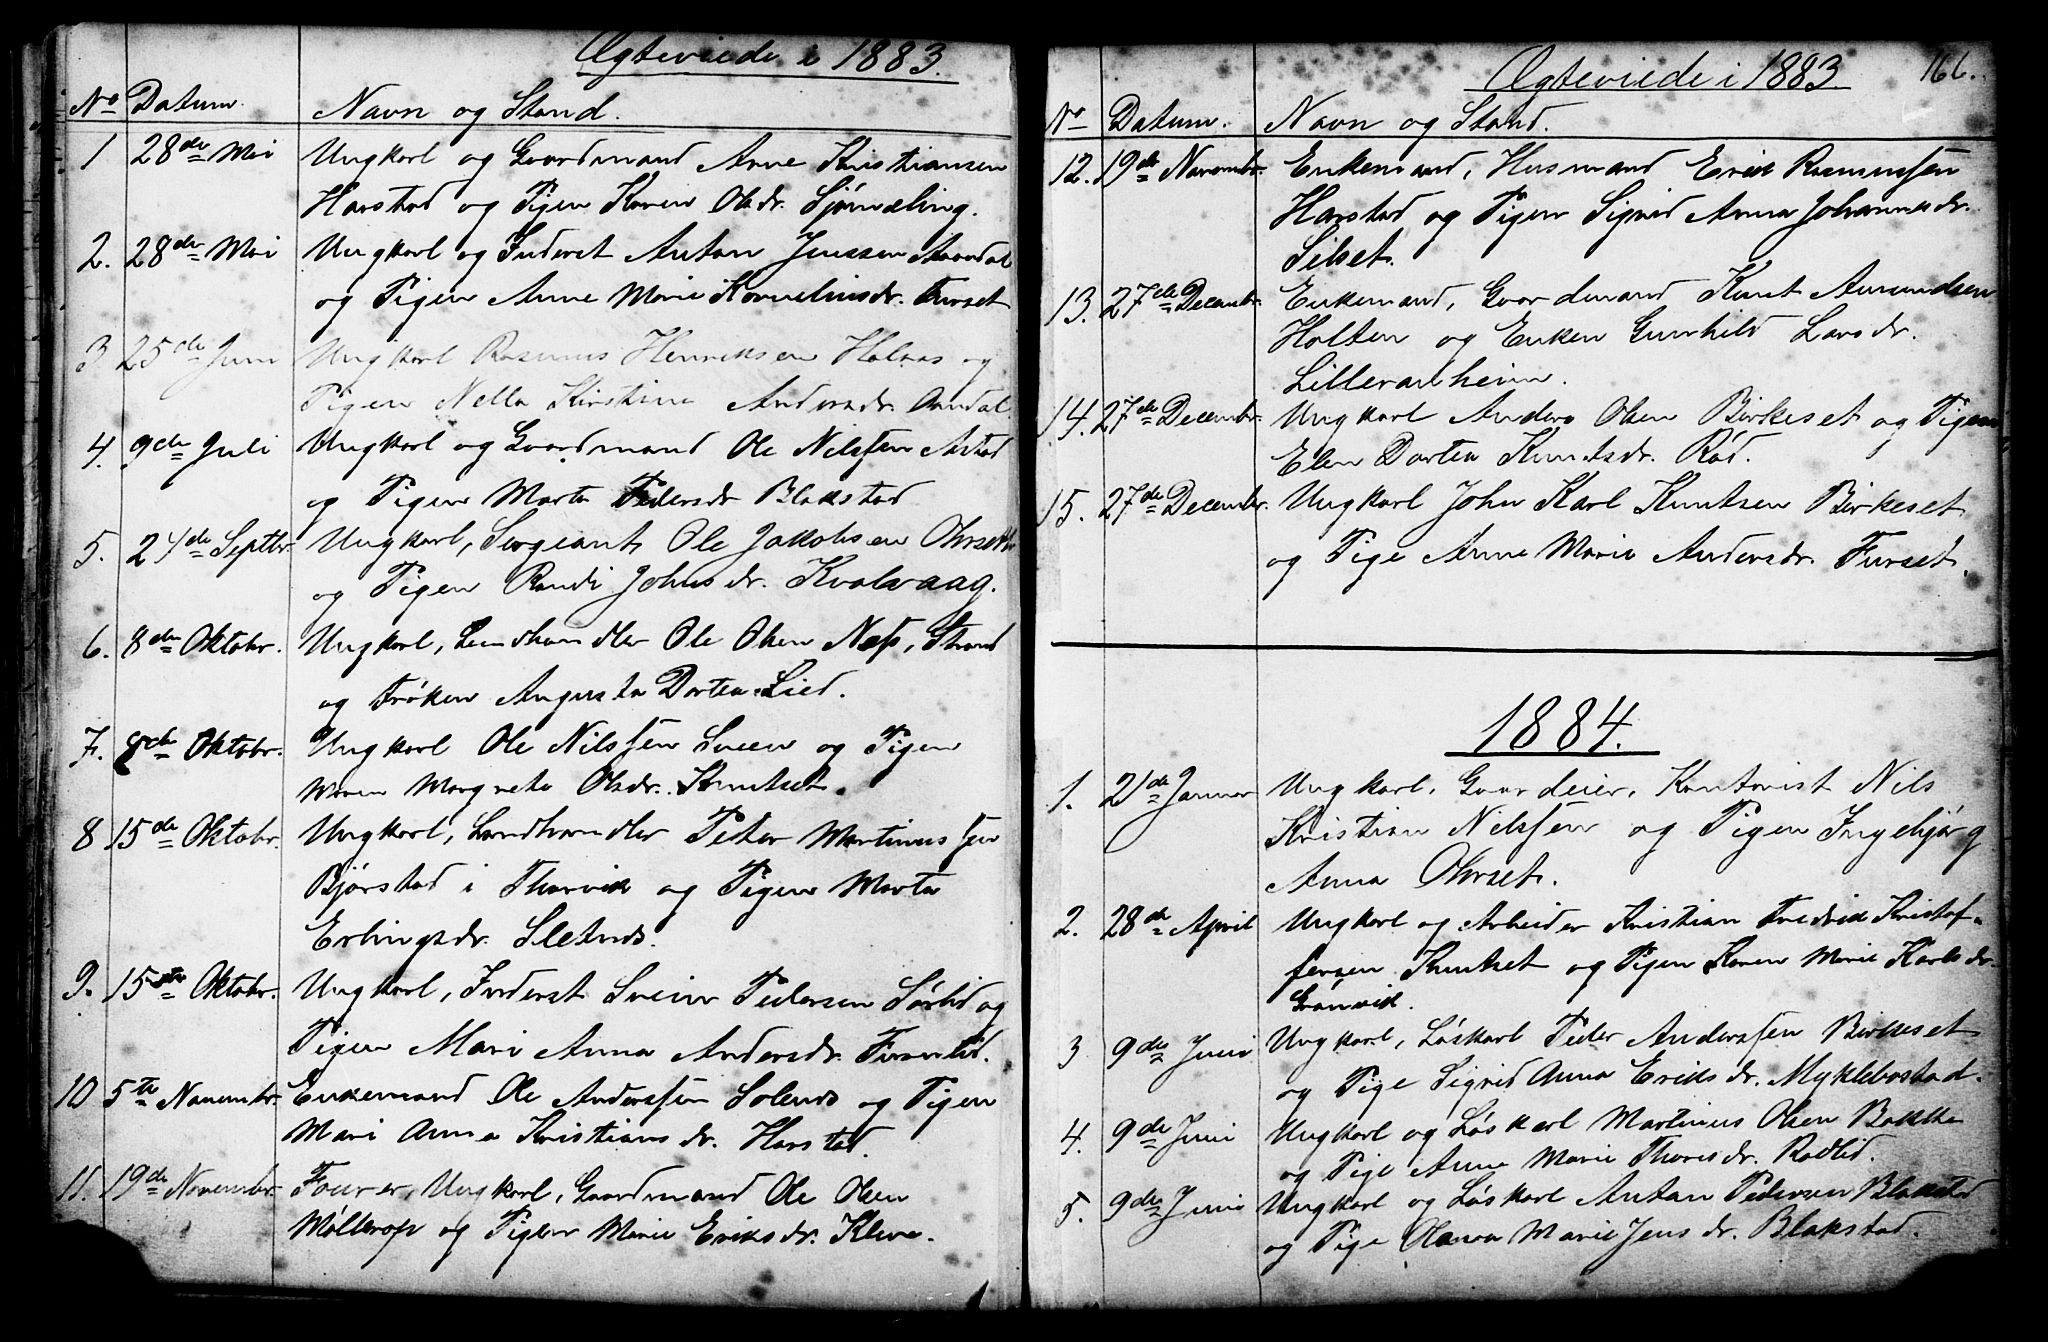 Ægteviede i 1883.
No Datum. Navn og Stand.
1 28de Mai Ungkarl og Gaardmand Arne Kristiansen
Harstad og Pigen Karen Olsdr. Sjømæling.
2. 28de Mai Ungkarl og Inderst Anton Jenssen
og Pigen Anne Marie Korneliusdr. Furset
3 25de Juni Ungkarl Rasmus Henriksen Holaas og
Pigen Nella Kirstine Andersdr. Aandal.
4. 9de Juli Ungkarl og Gaardmand Ole Nilssen Aastad
og Pigen Marta Pedersdr Blakstad
5. 24de Septbr. Ungkarl, Sergeant Ole Jakobsen
og Pigen Randi Johnsdr. Kvalvaag.
6. 8de Oktobr. Ungkarl, Landhandler Ole Olsen Næs, Strand
og Frøken Augusta Dortea Lied.
7. 8de Oktobr. Ungkarl Ole Nilssen Sveen og Pigen
Maren Margrete Olsdr. Knutset.
8 15de Oktobr. Ungkarl, Landhandler Peter Martinussen
Bjørstad i Thorvik og Pigen Marta
Erlingsdr. Sletnes.
9. 15de Oktobr. Ungkarl, Inderst Svein Pedersen Sørlid og
Pigen Mari Anna Andersdr. Fursetlid.
10 5te Novembr. Enkemand Ole Anderssen Solend og Pigen
Mari Anna Kristiansdr. Harstad.
11. 19de Novembr. Fourer, Ungkarl, Gaardmand Ole Olsen
Møllerop og Pigen Marie Eriksdr. Kleve.
Ægteviede i 1883. 166.
No Datum. Navn og Stand.
12. 19de Novembr. Enkemand, Husmand Erik Rasmussen
Harstad og Pigen Sigrid Anna Johannesdr.
Silset.
13. 27de Decembr. Enkemand, Gaardmand Knut Amundsen
Holten og Enken Gunhild Larsdr.
Lillevanheim.
14. 27de Decembr. Ungkarl Anders Olsen Birkeset og Pigen
Elen Dortea Knutsdr. Rød.
15. 27de Decembr. Ungkarl John Karl Knutsen Birkeset
og Pige Anne Marie Andersdr. Furset.
1884.
1. 21de Januar Ungkarl, Gaardeier, Kontorist Nils
Kristian Nilssen og Pigen Ingebjørg
Anna Ohrset.
2. 28de April Ungkarl og Arbeider Kristian Fredrik Kristof-
fersen Knutset og Pigen Karen Marie Karlsdr.
Grønvik.
3 9de Juni Ungkarl, Løskarl Peder Anderssen Birkeset
og Pige Sigrid Anna Eriksdr. Myklebostad.
4. 9de Juni Ungkarl og Løskarl Martinus Olsen Bakke
og Pige Anne Marie Thoresdr. Rødlid.
5. 9de Juni Ungkarl og Løskarl Anton Pedersen Blakstad
og Pige Olava Marie Jensdr. Blakstad.